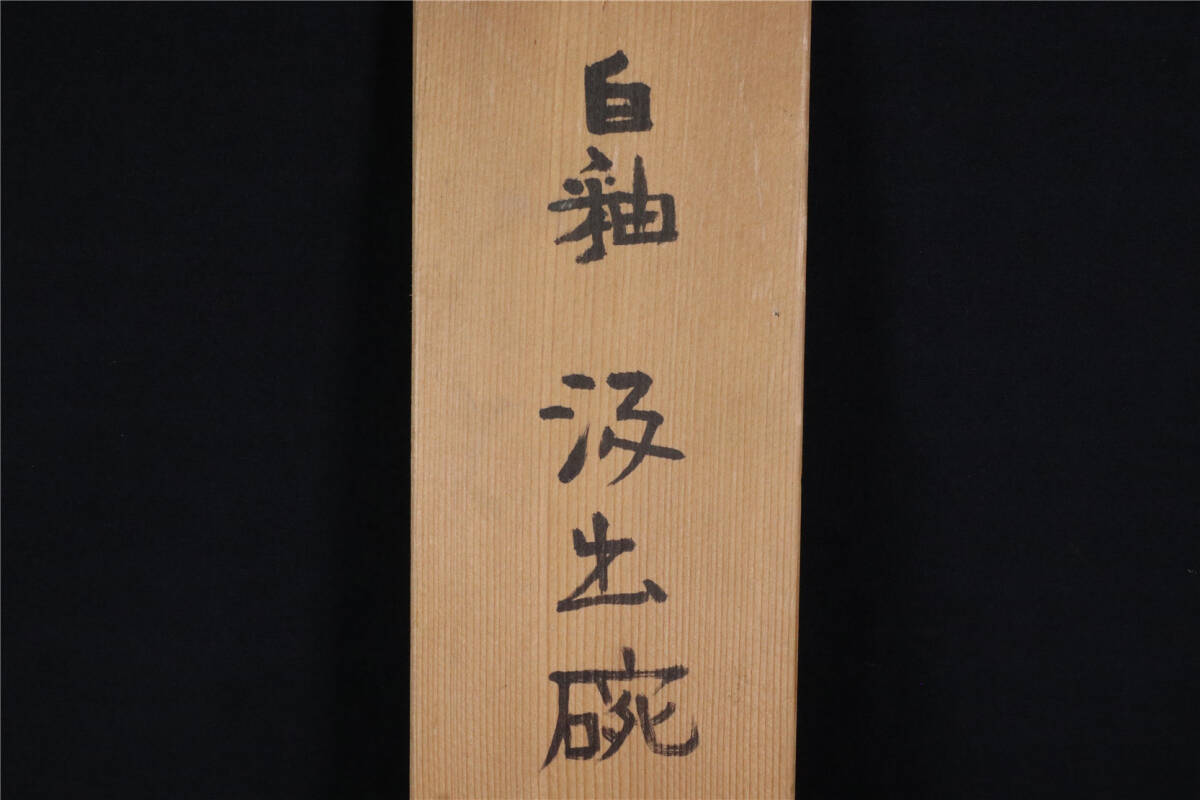 白釉 汲出碗